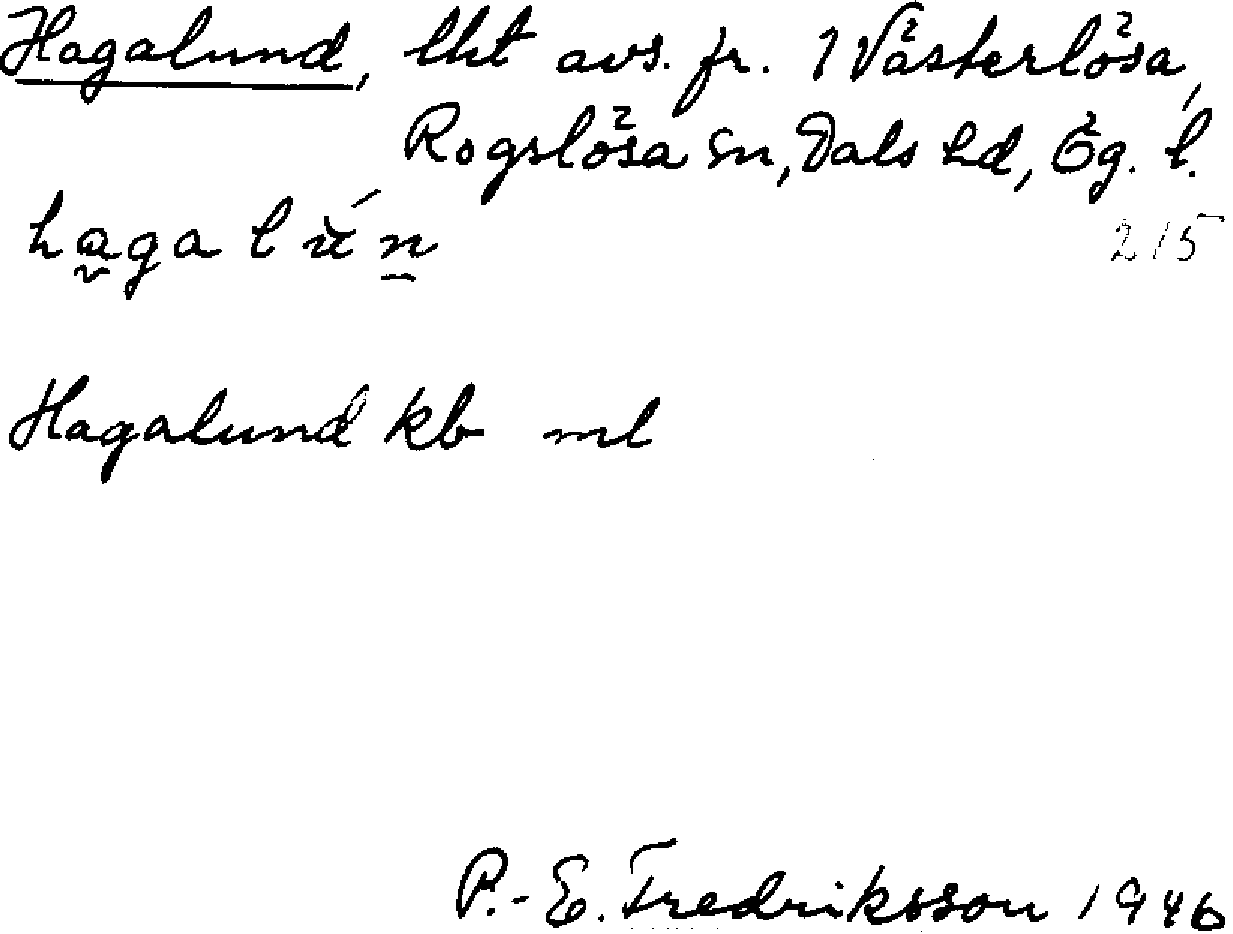 Hagalund, lht avs. fr. 1 Västerlösa,
Rogslösa sn, Dals hd, Ög. l.
hagalún
215
Hagalund kb ml
P.-E. Fredriksson 1946